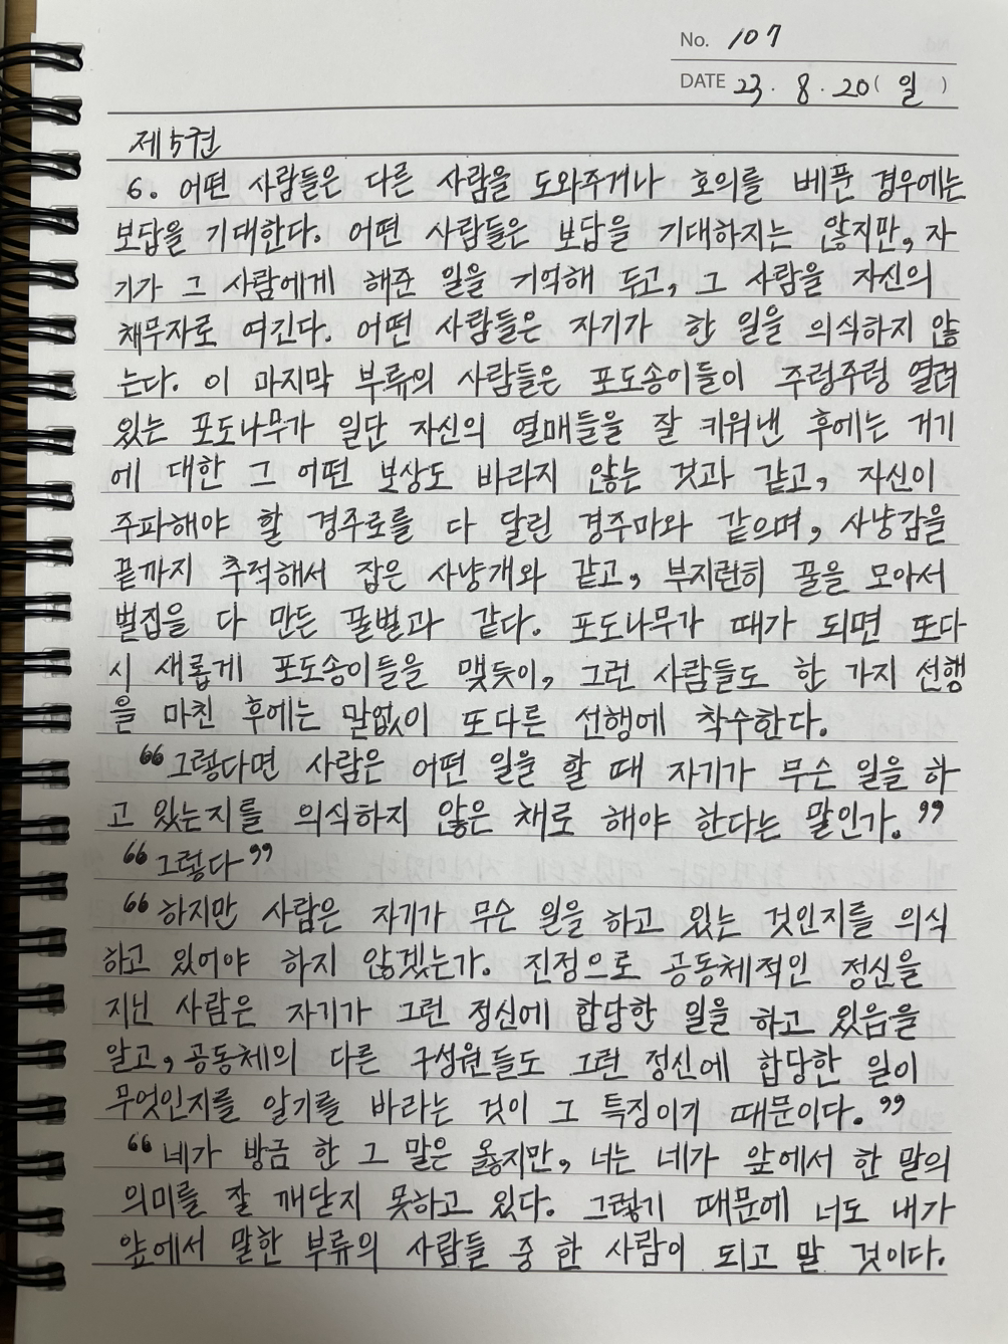 No. 107
DATE 23. 8. 20 ( 일 )
제5권
6. 어떤 사람들은 다른 사람을 도와주거나 호의를 베푼 경우에는
보답을 기대한다. 어떤 사람들은 보답을 기대하지는 않지만, 자
기가 그 사람에게 해준 일을 기억해 두고, 그 사람을 자신의
채무자로 여긴다. 어떤 사람들은 자기가 한 일을 의식하지 않
는다. 이 마지막 부류의 사람들은 포도송이들이 주렁주렁 열려
있는 포도나무가 일단 자신의 열매들을 잘 키워낸 후에는 거기
에 대한 그 어떤 보상도 바라지 않는 것과 같고, 자신이
주파해야 할 경주로를 다 달린 경주마와 같으며, 사냥감을
끝까지 추적해서 잡은 사냥개와 같고, 부지런히 꿀을 모아서
벌집을 다 만든 꿀벌과 같다. 포도나무가 때가 되면 또다
시 새롭게 포도송이들을 맺듯이, 그런 사람들도 한 가지 선행
을 마친 후에는 말없이 또다른 선행에 착수한다.
“그렇다면 사람은 어떤 일을 할 때 자기가 무슨 일을 하
고 있는지를 의식하지 않은 채로 해야 한다는 말인가.”
“그렇다”
“하지만 사람은 자기가 무슨 일을 하고 있는 것인지를 의식
하고 있어야 하지 않겠는가. 진정으로 공동체적인 정신을
지닌 사람은 자기가 그런 정신에 합당한 일을 하고 있음을
알고, 공동체의 다른 구성원들도 그런 정신에 합당한 일이
무엇인지를 알기를 바라는 것이 그 특징이기 때문이다.”
“네가 방금 한 그 말은 옳지만, 너는 네가 앞에서 한 말의
의미를 잘 깨닫지 못하고 있다. 그렇기 때문에 너도 내가
앞에서 말한 부류의 사람들 중 한 사람이 되고 말 것이다.